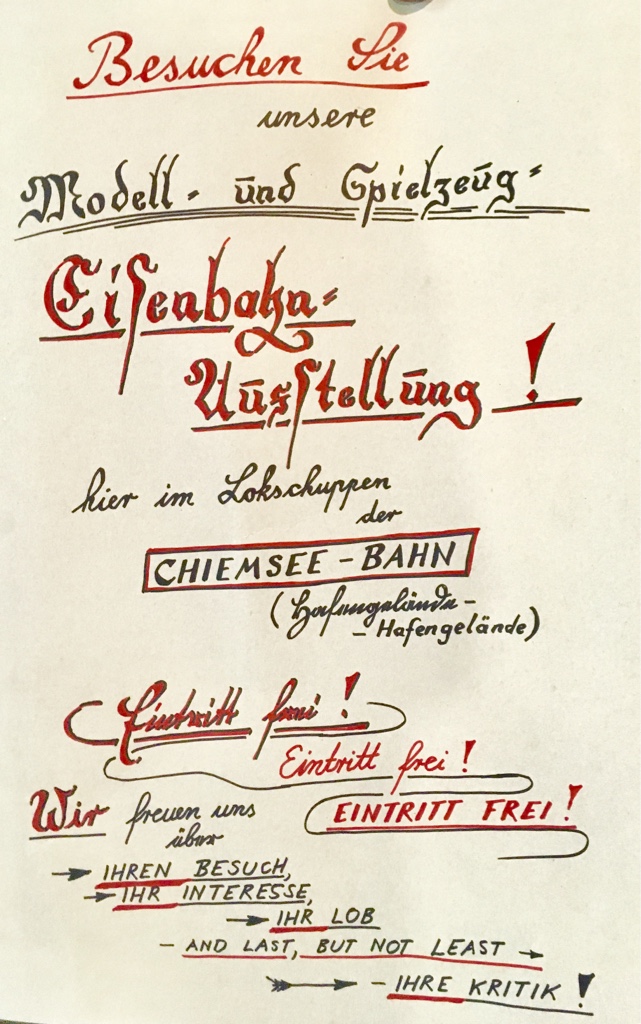 Besuchen Sie
unsere
Modell- und Spielzeug-
Eisenbahn-
Ausstellung!
hier im Lokschuppen
der
CHIEMSEE-BAHN
(Hafengelände-
- Hafengelände)
Eintritt frei!
Eintritt frei!
EINTRITT FREI!
Wir freuen uns
über
→ IHREN BESUCH,
→ IHR INTERESSE,
→ IHR LOB
- AND LAST, BUT NOT LEAST →
→ - IHRE KRITIK!